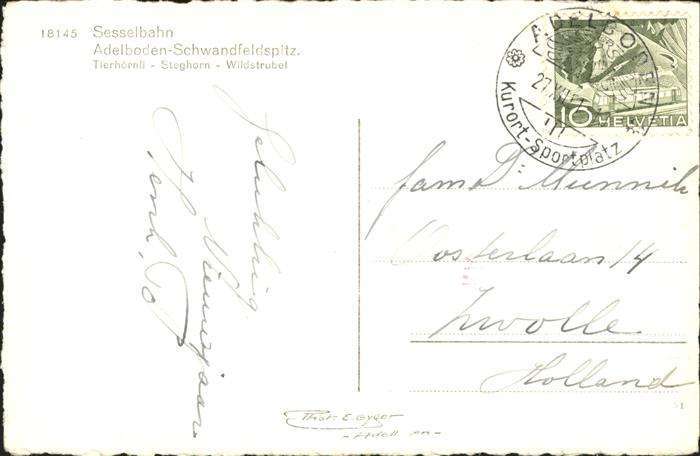 18145 Sesselbahn
Adelboden-Schwandfeldspitz.
Tierhörnli - Steghorn - Wildstrubel
ADELBODEN
Kurort-Sportplatz
10 HELVETIA
Gelukkig
Nieuwjaar
fam D Munnik
Oosterlaan 14
Zwolle
Holland
Phot. E. Gyger